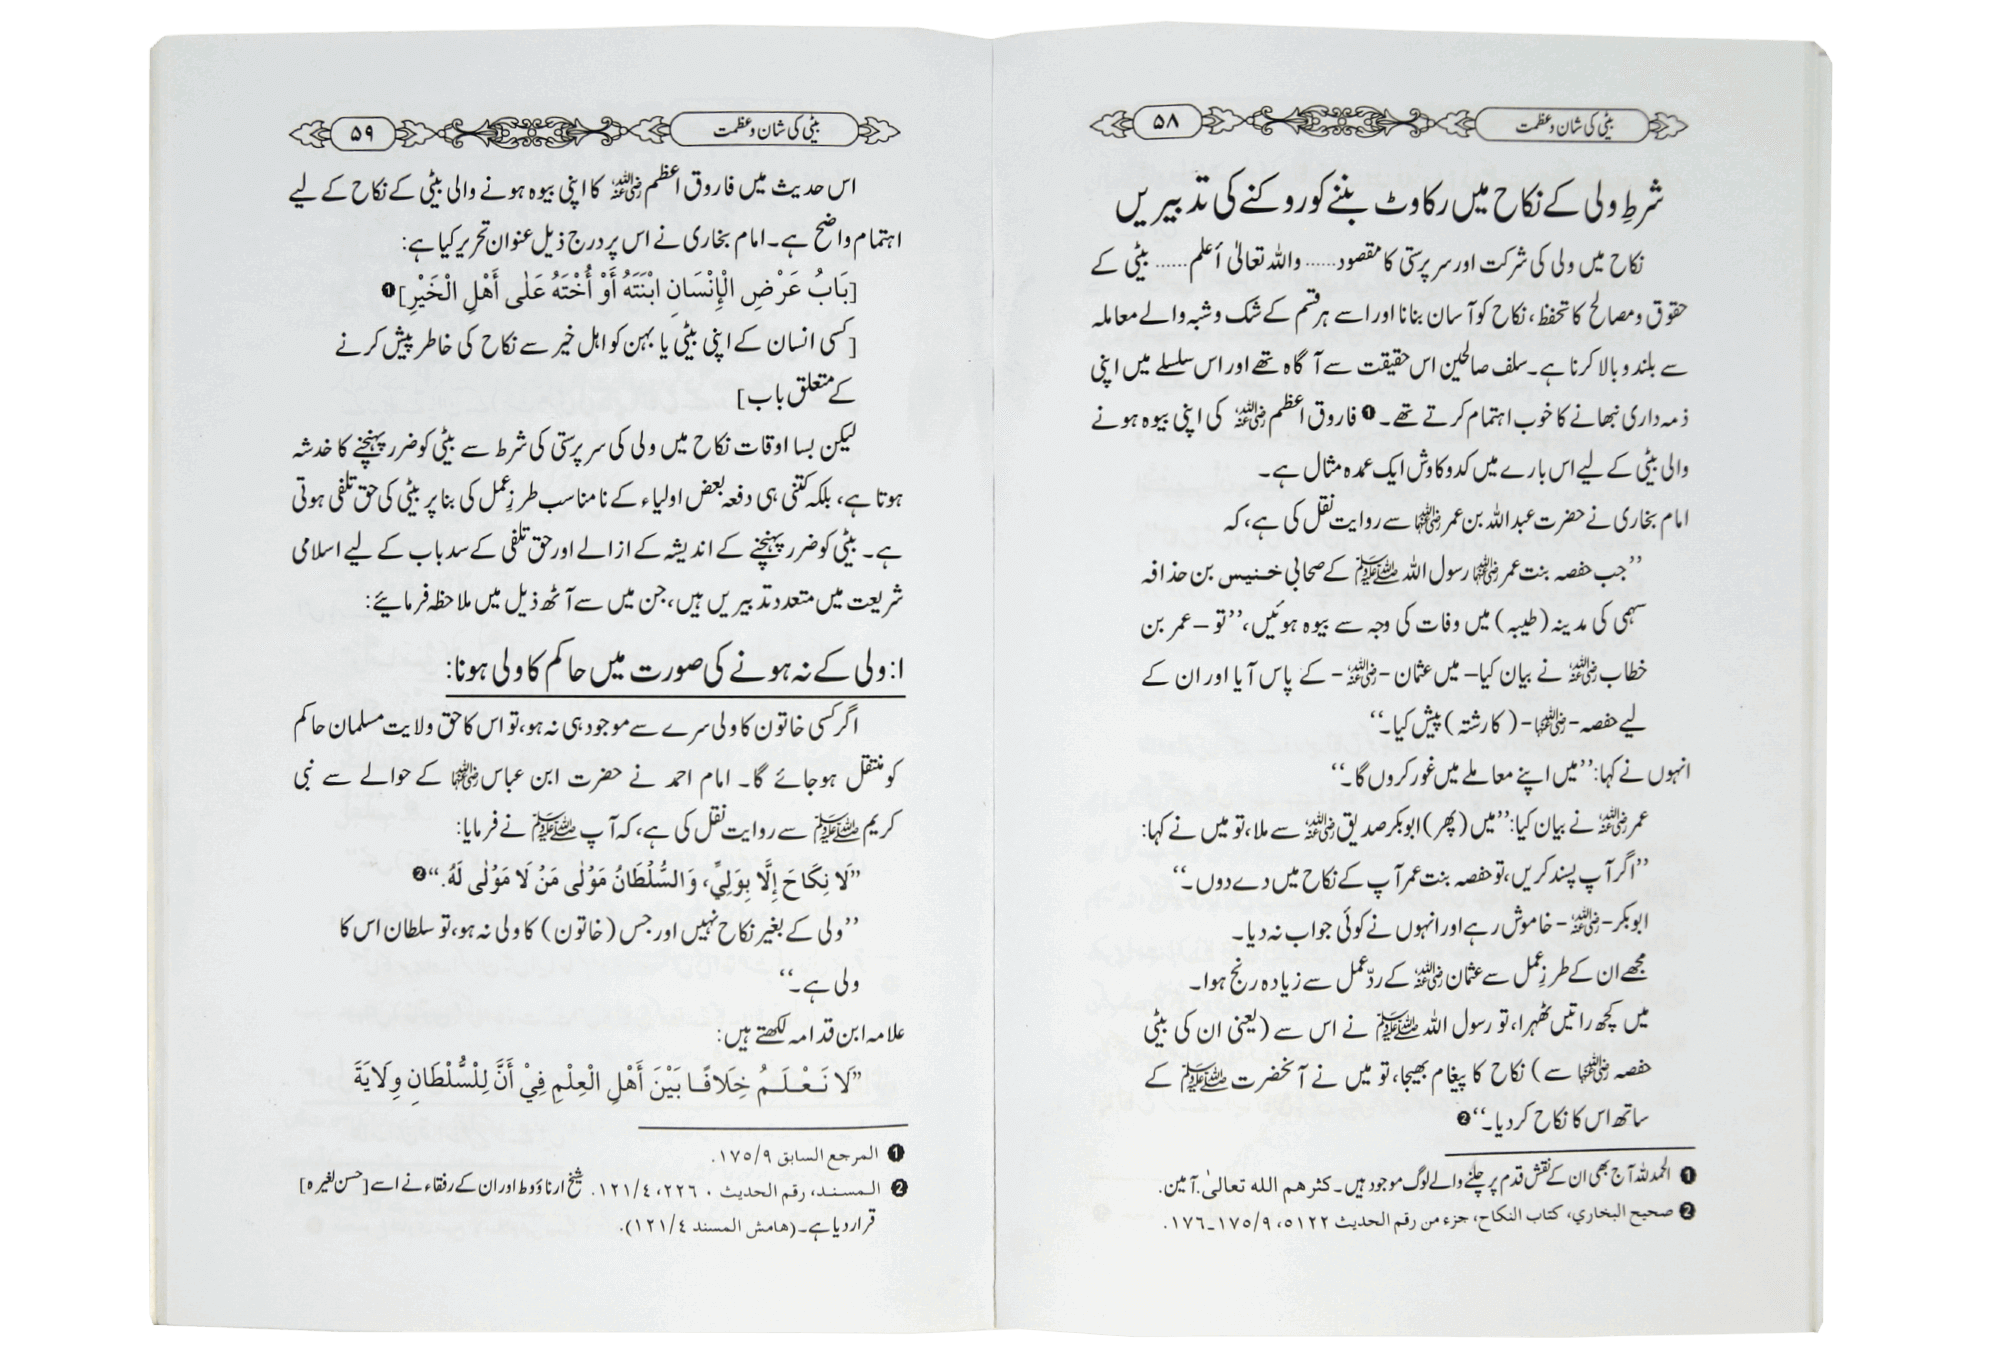 بیٹی کی شان و عظمت
۵۸
شرطِ ولی کے نکاح میں رکاوٹ بننے کو روکنے کی تدبیریں
نکاح میں ولی کی شرکت اور سرپرستی کا مقصود...... واللہ تعالیٰ أعلم...... بیٹی کے
حقوق و مصالح کا تحفظ، نکاح کو آسان بنانا اور اسے ہر قسم کے شک و شبہ والے معاملہ
سے بلند و بالا کرنا ہے۔ سلف صالحین اس حقیقت سے آگاہ تھے اور اس سلسلے میں اپنی
ذمہ داری نبھانے کا خوب اہتمام کرتے تھے۔❶ فاروق اعظم رضی اللہ عنہ کی اپنی بیوہ ہونے
والی بیٹی کے لیے اس بارے میں کدو کاوش ایک عمدہ مثال ہے۔
امام بخاری نے حضرت عبداللہ بن عمر رضی اللہ عنہما سے روایت نقل کی ہے، کہ
’’جب حفصہ بنت عمر رضی اللہ عنہما رسول اللہ ﷺ کے صحابی خنیس بن حذافہ
سہمی کی مدینہ (طیبہ) میں وفات کی وجہ سے بیوہ ہوئیں،‘‘ تو – عمر بن
خطاب رضی اللہ عنہ نے بیان کیا – میں عثمان - رضی اللہ عنہ - کے پاس آیا اور ان کے
لیے حفصہ - رضی اللہ عنہا - (کا رشتہ) پیش کیا۔‘‘
انہوں نے کہا: ’’میں اپنے معاملے میں غور کروں گا۔‘‘
عمر رضی اللہ عنہ نے بیان کیا: ’’میں (پھر) ابوبکر صدیق رضی اللہ عنہ سے ملا، تو میں نے کہا:
’’اگر آپ پسند کریں، تو حفصہ بنت عمر آپ کے نکاح میں دے دوں۔‘‘
ابوبکر - رضی اللہ عنہ - خاموش رہے اور انہوں نے کوئی جواب نہ دیا۔
مجھے ان کے طرزِ عمل سے عثمان رضی اللہ عنہ کے ردّ عمل سے زیادہ رنج ہوا۔
میں کچھ راتیں ٹھہرا، تو رسول اللہ ﷺ نے اس سے (یعنی ان کی بیٹی
حفصہ رضی اللہ عنہا سے) نکاح کا پیغام بھیجا، تو میں نے آنحضرت ﷺ کے
ساتھ اس کا نکاح کر دیا۔‘‘❷
❶ الحمد للہ آج بھی ان کے نقش قدم پر چلنے والے لوگ موجود ہیں۔ کثرهم الله تعالىٰ. آمین.
❷ صحیح البخاري، كتاب النكاح، جزء من رقم الحديث ٥١٢٢، ٩/١٧٥-١٧٦.
بیٹی کی شان و عظمت
۵۹
اس حدیث میں فاروق اعظم رضی اللہ عنہ کا اپنی بیوہ ہونے والی بیٹی کے نکاح کے لیے
اہتمام واضح ہے۔ امام بخاری نے اس پر درج ذیل عنوان تحریر کیا ہے:
[بَابُ عَرْضِ الْإِنْسَانِ ابْنَتَهُ أَوْ أُخْتَهُ عَلٰى أَهْلِ الْخَيْرِ]❶
[کسی انسان کے اپنی بیٹی یا بہن کو اہل خیر سے نکاح کی خاطر پیش کرنے
کے متعلق باب]
لیکن بسا اوقات نکاح میں ولی کی سرپرستی کی شرط سے بیٹی کو ضرر پہنچنے کا خدشہ
ہوتا ہے، بلکہ کتنی ہی دفعہ بعض اولیاء کے نامناسب طرزِ عمل کی بنا پر بیٹی کی حق تلفی ہوتی
ہے۔ بیٹی کو ضرر پہنچنے کے اندیشہ کے ازالے اور حق تلفی کے سدباب کے لیے اسلامی
شریعت میں متعدد تدبیریں ہیں، جن میں سے آٹھ ذیل میں ملاحظہ فرمائیے:
۱: ولی کے نہ ہونے کی صورت میں حاکم کا ولی ہونا:
اگر کسی خاتون کا ولی سرے سے موجود ہی نہ ہو، تو اس کا حق ولایت مسلمان حاکم
کو منتقل ہو جائے گا۔ امام احمد نے حضرت ابن عباس رضی اللہ عنہما کے حوالے سے نبی
کریم ﷺ سے روایت نقل کی ہے، کہ آپ ﷺ نے فرمایا:
’’لَا نِكَاحَ إِلَّا بِوَلِيٍّ، وَالسُّلْطَانُ مَوْلٰى مَنْ لَا مَوْلٰى لَهُ.‘‘❷
’’ولی کے بغیر نکاح نہیں اور جس (خاتون) کا ولی نہ ہو، تو سلطان اس کا
ولی ہے۔‘‘
علامہ ابن قدامہ لکھتے ہیں:
’’لَا نَعْلَمُ خِلَافًا بَيْنَ أَهْلِ الْعِلْمِ فِيْ أَنَّ لِلْسُّلْطَانِ وِلَايَةَ
❶ المرجع السابق ٩/١٧٥.
❷ المسند، رقم الحديث ٢٢٦٠، ٤/١٢١. شیخ ارناؤوط اور ان کے رفقاء نے اسے [حسن لغیرہ]
قرار دیا ہے۔ (هامش المسند ٤/١٢١).